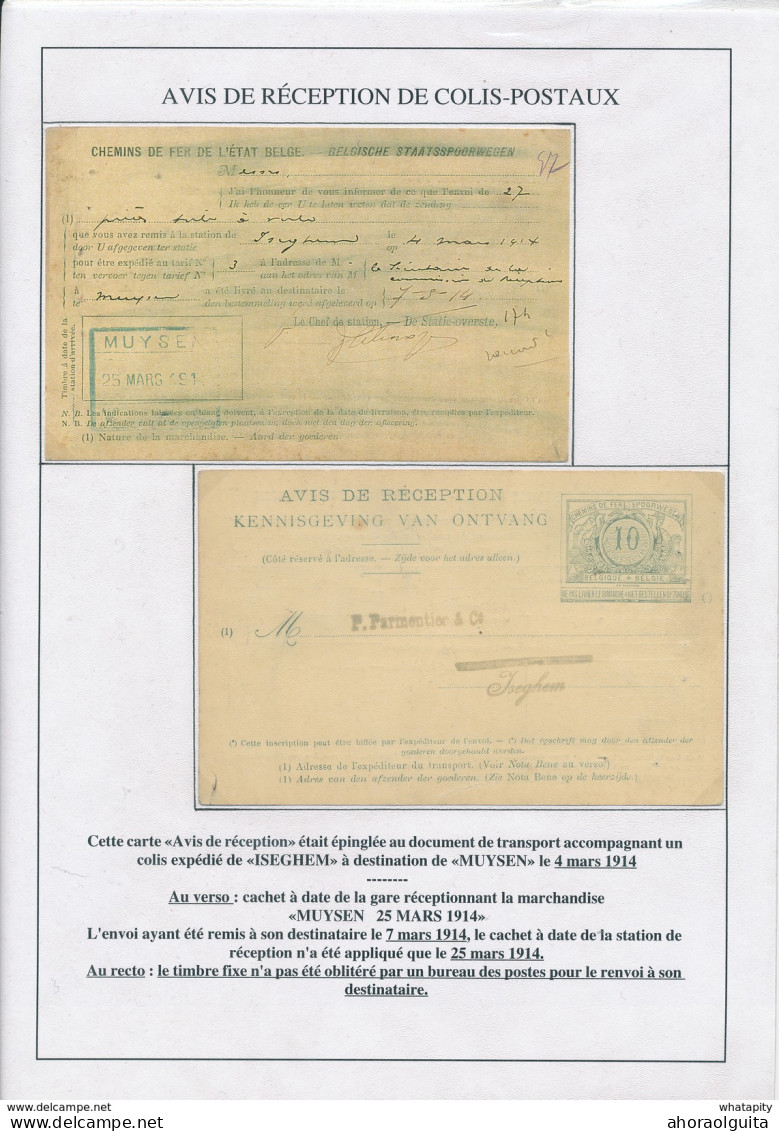 AVIS DE RÉCEPTION DE COLIS-POSTAUX
CHEMINS DE FER DE L'ÉTAT BELGE. — BELGISCHE STAATSSPOORWEGEN
97
Messrs,
J'ai l'honneur de vous informer de ce que l'envoi de 27
Ik heb de eer U te laten weten dat de zending
(1)
que vous avez remis à la station de Iseghem le 4 mars 1914
door U afgegeven ter statie op
pour être expédié au tarif N° 3 à l'adresse de M
ten vervoer tegen tarief N° aan het adres van M
à Muysen a été livré au destinataire le 7-3-14
te den bestemmeling werd afgeleverd op
Le Chef de station, — De Statie-overste, 17h
Timbre à date de la station d'arrivée.
MUYSEN
25 MARS 191
N. B. Les indications laissées en blanc doivent, à l'exception de la date du livraison, être remplies par l'expéditeur.
N. B. De afzender vult al de opengelaten plaatsen in, doch niet den dag der aflevering.
(1) Nature de la marchandise. — Aard der goederen
AVIS DE RÉCEPTION
KENNISGEVING VAN ONTVANG
(Côté réservé à l'adresse. — Zijde voor het adres alleen.)
CHEMINS DE FER SPOORWEGEN
10
BELGIQUE • BELGIE
NE PAS LIVRER LE DIMANCHE • NIET BESTELLEN OP ZONDAG
(1) M P. Parmentier & Cº
Iseghem
(*) Cette inscription peut être biffée par l'expéditeur de l'envoi. — (*) Dat opschrift mag door den afzender der
goederen doorgehaald worden.
(1) Adresse de l'expéditeur du transport. (Voir Nota Bene au verso.)
(1) Adres van den afzender der goederen. (Zie Nota Bene op de keerzijde.)
Cette carte «Avis de réception» était épinglée au document de transport accompagnant un
colis expédié de «ISEGHEM» à destination de «MUYSEN» le 4 mars 1914
--------
Au verso : cachet à date de la gare réceptionnant la marchandise
«MUYSEN 25 MARS 1914»
L'envoi ayant été remis à son destinataire le 7 mars 1914, le cachet à date de la station de
réception n'a été appliqué que le 25 mars 1914.
Au recto : le timbre fixe n'a pas été oblitéré par un bureau des postes pour le renvoi à son
destinataire.
www.delcampe.net
whatapity
ahoraolguita